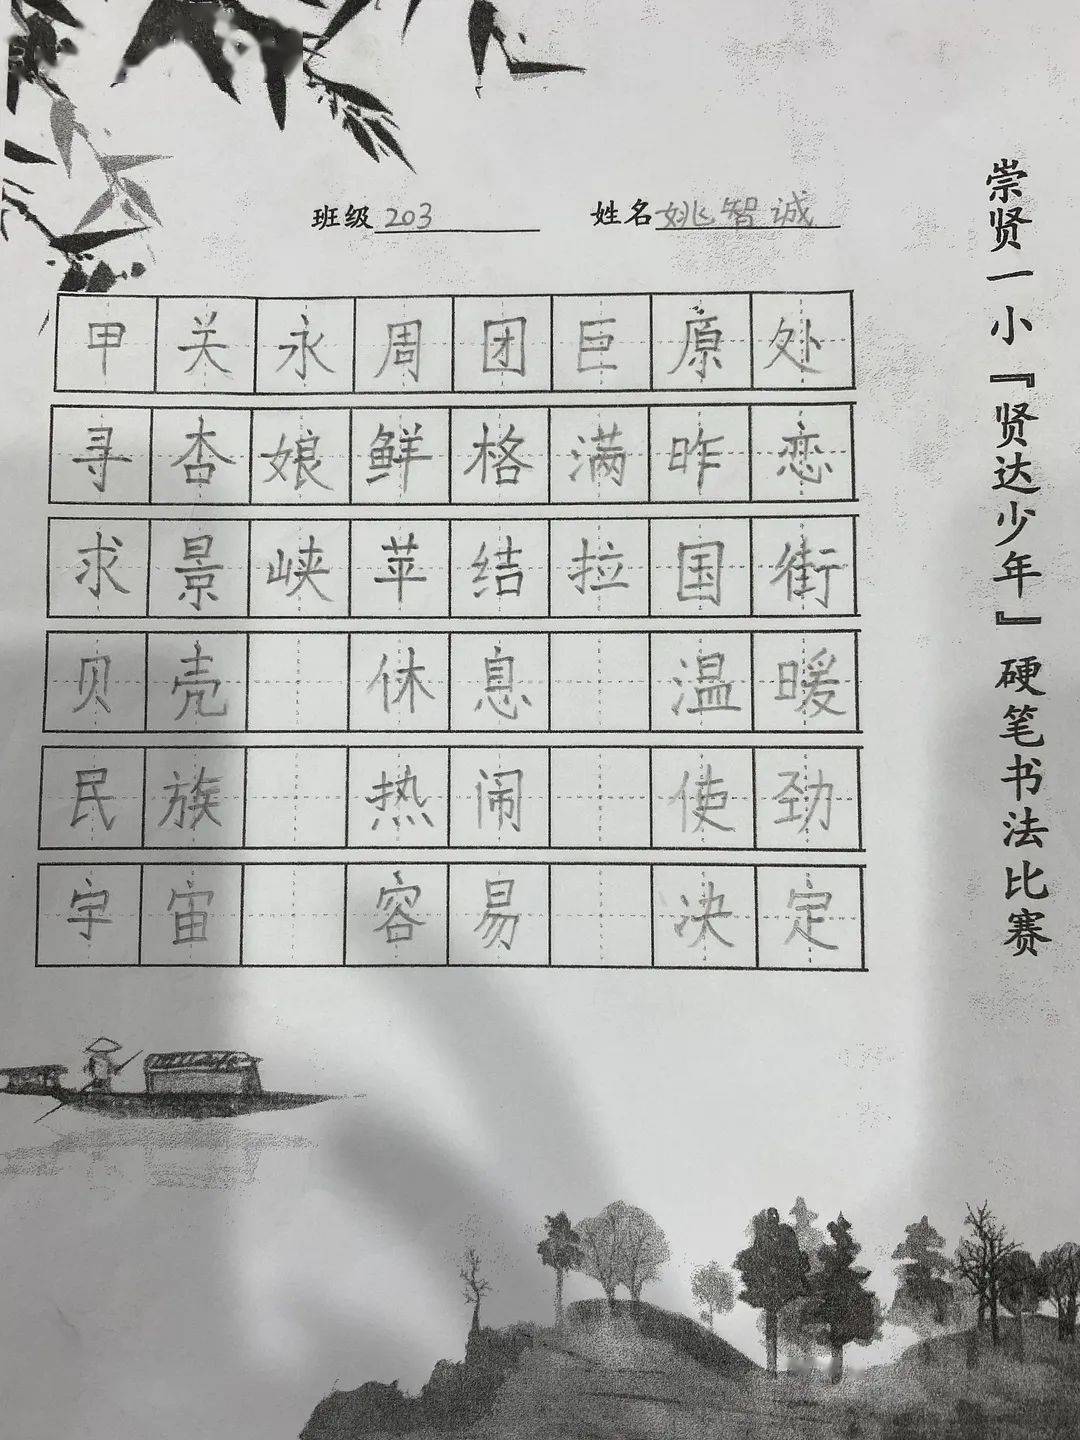 崇贤一小『贤达少年』硬笔书法比赛
班级 203 姓名 姚智诚
甲关永周团巨原处
寻杏娘鲜格满昨恋
求景峡苹结拉国街
贝壳 休息 温暖
民族 热闹 使劲
宇宙 容易 决定